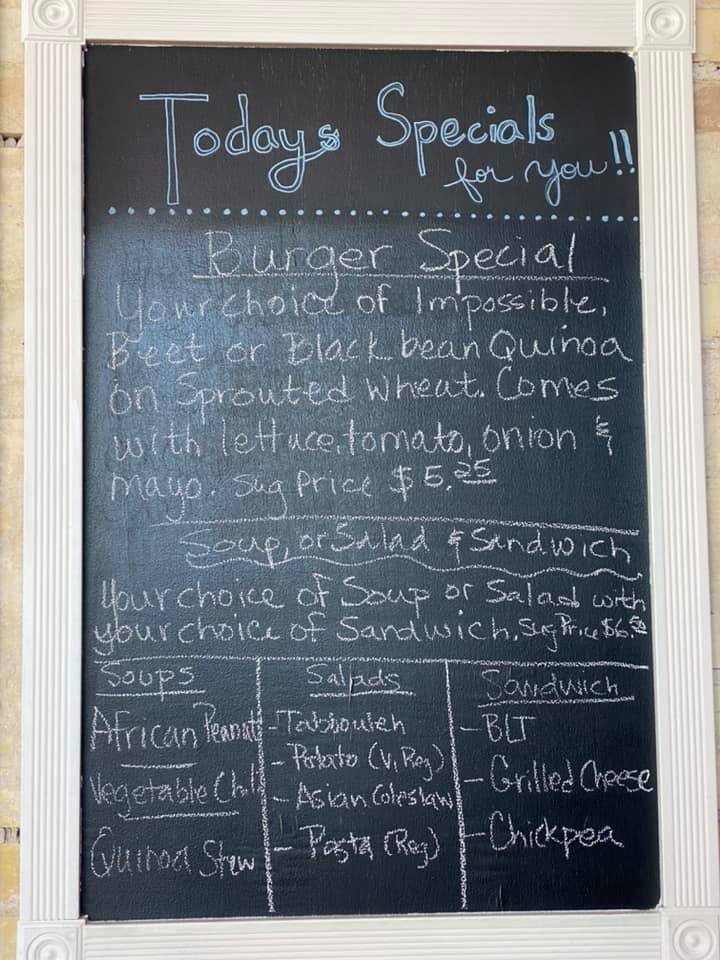 Todays Specials
for you!!
Burger Special
Your choice of Impossible,
Beet or Black bean Quinoa
on Sprouted Wheat. Comes
with lettuce, tomato, onion &
mayo. Sug Price $5.25
Soup, or Salad & Sandwich
Your choice of Soup or Salad with
your choice of Sandwich. Sug Price $6.50
Soups
African Peanut
Vegetable Chili
Quinoa Stew
Salads
- Tabbouleh
- Potato (V, Reg)
- Asian Coleslaw
- Pasta (Reg)
Sandwich
- BLT
- Grilled Cheese
- Chickpea